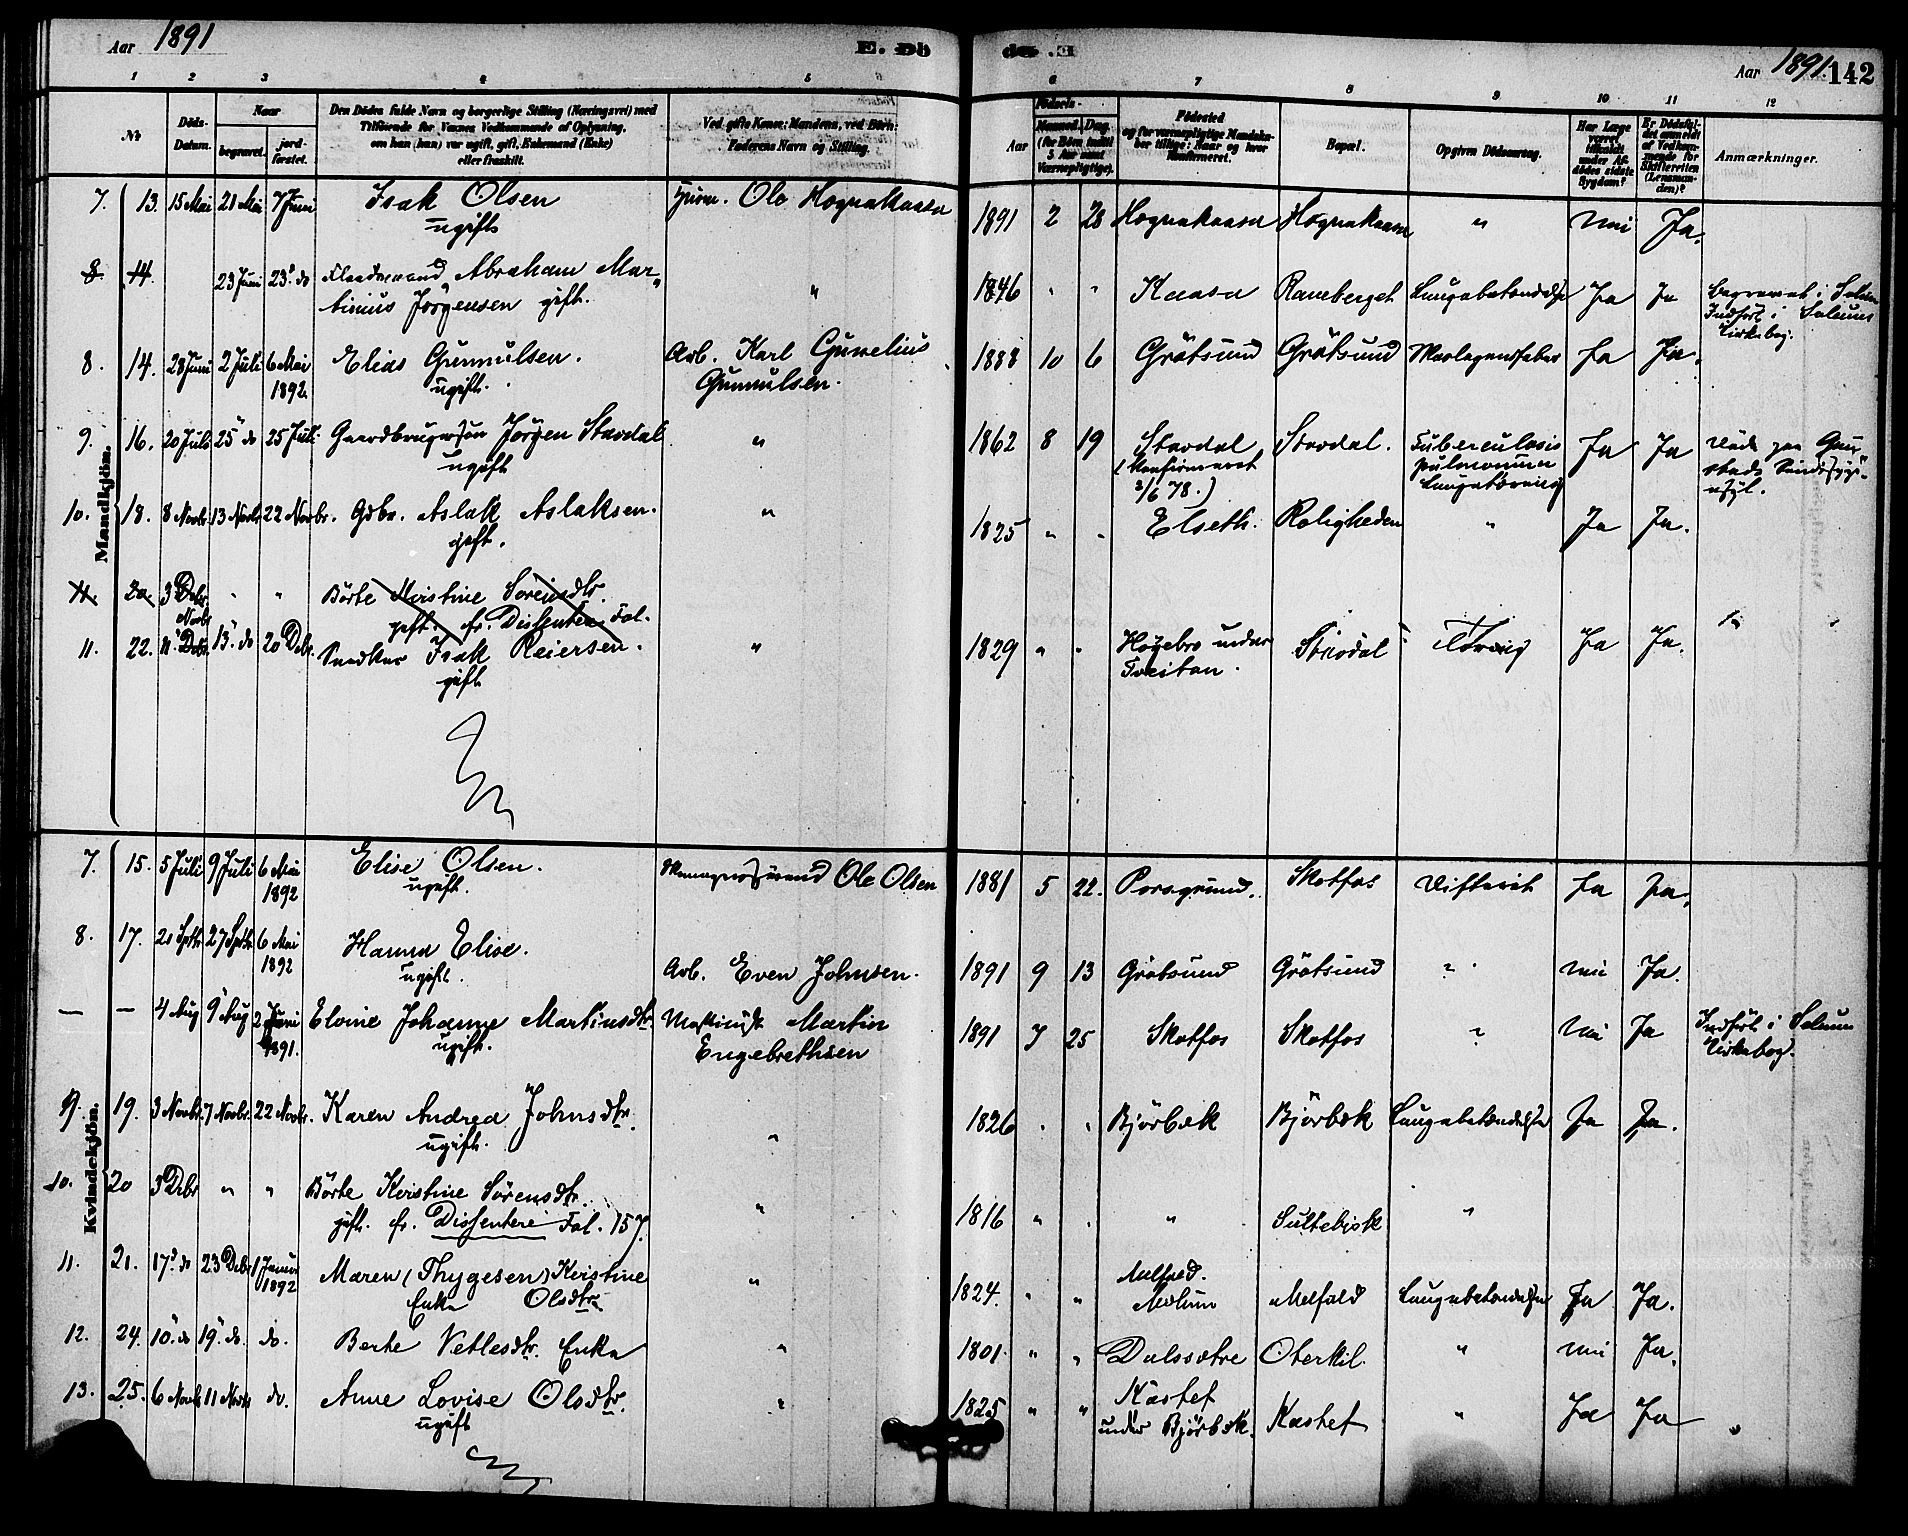 Aar 1891 E. Dö
de. E Aar 1891. 142
1 2 3 4 5 6
6 7 8 9 10 11 12
No. Döds-Datum. Naar begravet. jordfæstet. Den Dödes fulde Navn og borgerlige Stilling (Næringsvei) med Tilföiende for Voxnes Vedkommende af Oplysning, om han (hun) var ugift, gift, Enkemand (Enke) eller fraskilt. Ved gifte Koner: Mandens, ved Börn: Faderens Navn og Stilling.
Födsels- Aar Maaned. Dag. (for Börn indtil 5 Aar samt Værnepligtige). Födested og for værnepligtige Mandskaber tillige: Naar og hvor Konfirmeret. Bopæl. Opgiven Dödsaarsag. Har Læge været tilkaldt under Afdödes sidste Sygdom? Er Dödsfaldet anmeldt af Vedkommende for Skifteretten (Lensmanden)? Anmærkninger.
Mandkjön.
7. 13. 15 Mai 21 Mai 7 Juni Isak Olsen Ole Hognakaasa 1891 2 28 Hognakaasa Hognakaasa " nei Ja.
ugift
8. 14. 23 Juni 23 do Abraham Mar- " 1846 " " Kaasa Raneberget Lungebetændelse Ja Ja Begravet i Solum
tinius Jörgensen gift. Indfört i Solums
Kirkebog.
8. 14. 28 Juni 2 Juli 6 Mai Elias Gunnulsen. Arb. Karl Gunelius 1888 10 6 Gråtsund Gråtsund Skarlagensfeber Ja Ja.
1892. ugift. Gunnulsen.
9. 16. 20 Juli 25 do 25 Juli Gaardbrugersön Jörgen Stavdal " 1862 8 19 Stavdal Stavdal. Tuberculosis Ja Ja Döde paa Gau-
ugift (Konfirmeret pulmonum stads Sindssyge-
2/6 78.) Lungetæring asyl.
10. 18. 8 Novbr 13 Novbr 22 Novbr. Gbr. Aslak Aslaksen. " 1825 " " Elseth. Roligheden " Ja Ja.
gift.
11. 20. 3 Debr " " Börte Kristine Sörensdtr.
gift. fr. Dissentere Fol.
11. 22. Novbr 13 do 20 Debr. Snedker Isak Reiersen. " 1829 " " Högebro under Stavdal Tæring Ja Ja.
gift Tveitan.
Kvindekjön.
7. 15. 5 Juli 9 Juli 6 Mai Elise Olsen. Ole Olsen 1881 5 22. Porsgrund. Skotfos Difterit Ja Ja.
1892 ugift.
8. 17. 21 Sptb 27 Sptb 6 Mai Hanna Elise. Arb. Even Johnsen. 1891 9 13 Gråtsund Gråtsund " nei Ja.
1892 ugift.
— — 4 Aug 9 Aug 2 Juni Elvine Johanne Martinsdtr. Martin 1891 7 25 Skotfos Skotfos " Nei Ja Indfört i Solum
1891. ugift. Engebrethsen Kirkebog.
9. 19. 3 Novbr. 7 Novbr. 22 Novbr. Karen Andrea Johnsdtr. " 1826 " " Björbæk Björbæk Lungebetændelse Ja Ja.
ugift.
10. 20 3 Debr " " Börte Kristine Sörensdtr. " 1816 " " " Sultebisk "
gift. fr. Dissentere Fol. 157.
11. 21. 17 do 23 Debr 1 Januar Maren (Thygesen) Kristine " 1824. " " Melfald. Melfald Lungebetændelse Ja Ja.
1892 Enke Olsdtr. Melum
12. 24. 10 do 19 do. do. Berte Vetlesdtr. Enke " 1801. " " Dalssætre Oterkil. " nei Ja.
13. 25. 6 Novb 11 Novbr do. Anne Lovise Olsdtr. " 1825 " " Kåstet Kåstet " Ja Ja
ugift under Björbæk.